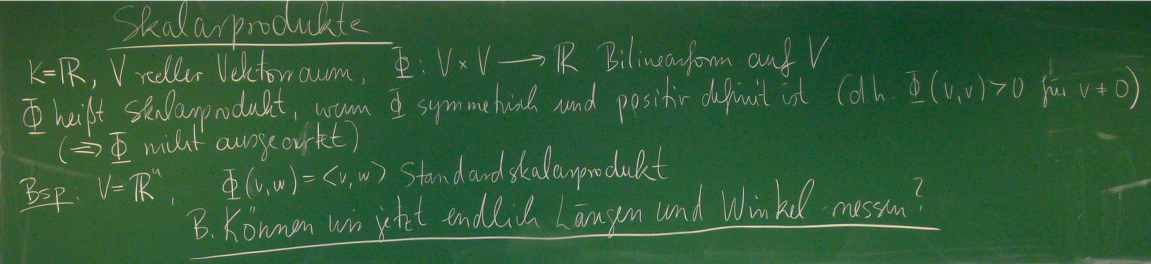 Skalarprodukte
K=ℝ, V reeller Vektorraum, Φ: V × V ⟶ ℝ Bilinearform auf V
Φ heißt Skalarprodukt, wenn Φ symmetrisch und positiv definit ist (d.h. Φ(v,v)>0 für v≠0)
(⇒ Φ nicht ausgeartet)
Bsp. V=ℝⁿ, Φ(v,w)=<v,w> Standardskalarprodukt
B. Können wir jetzt endlich Längen und Winkel messen?